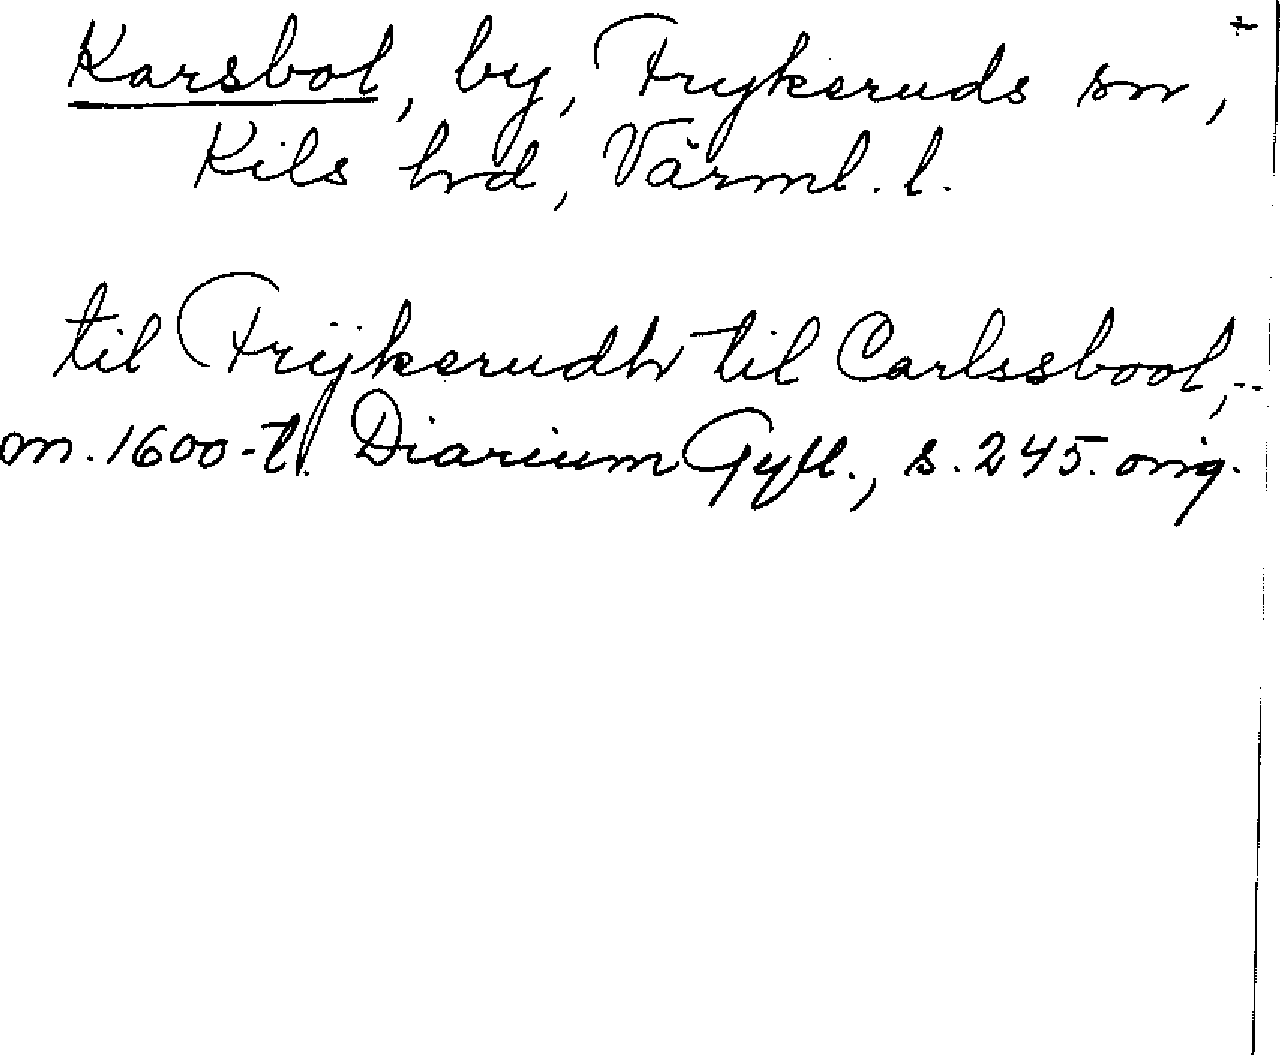 Karsbol, by, Frykeruds sn, +
Kils hrd, Värml. l.
til Frijkerudh til Carlssbool, --
m. 1600-t. Diarium Gyll., s. 245. orig.